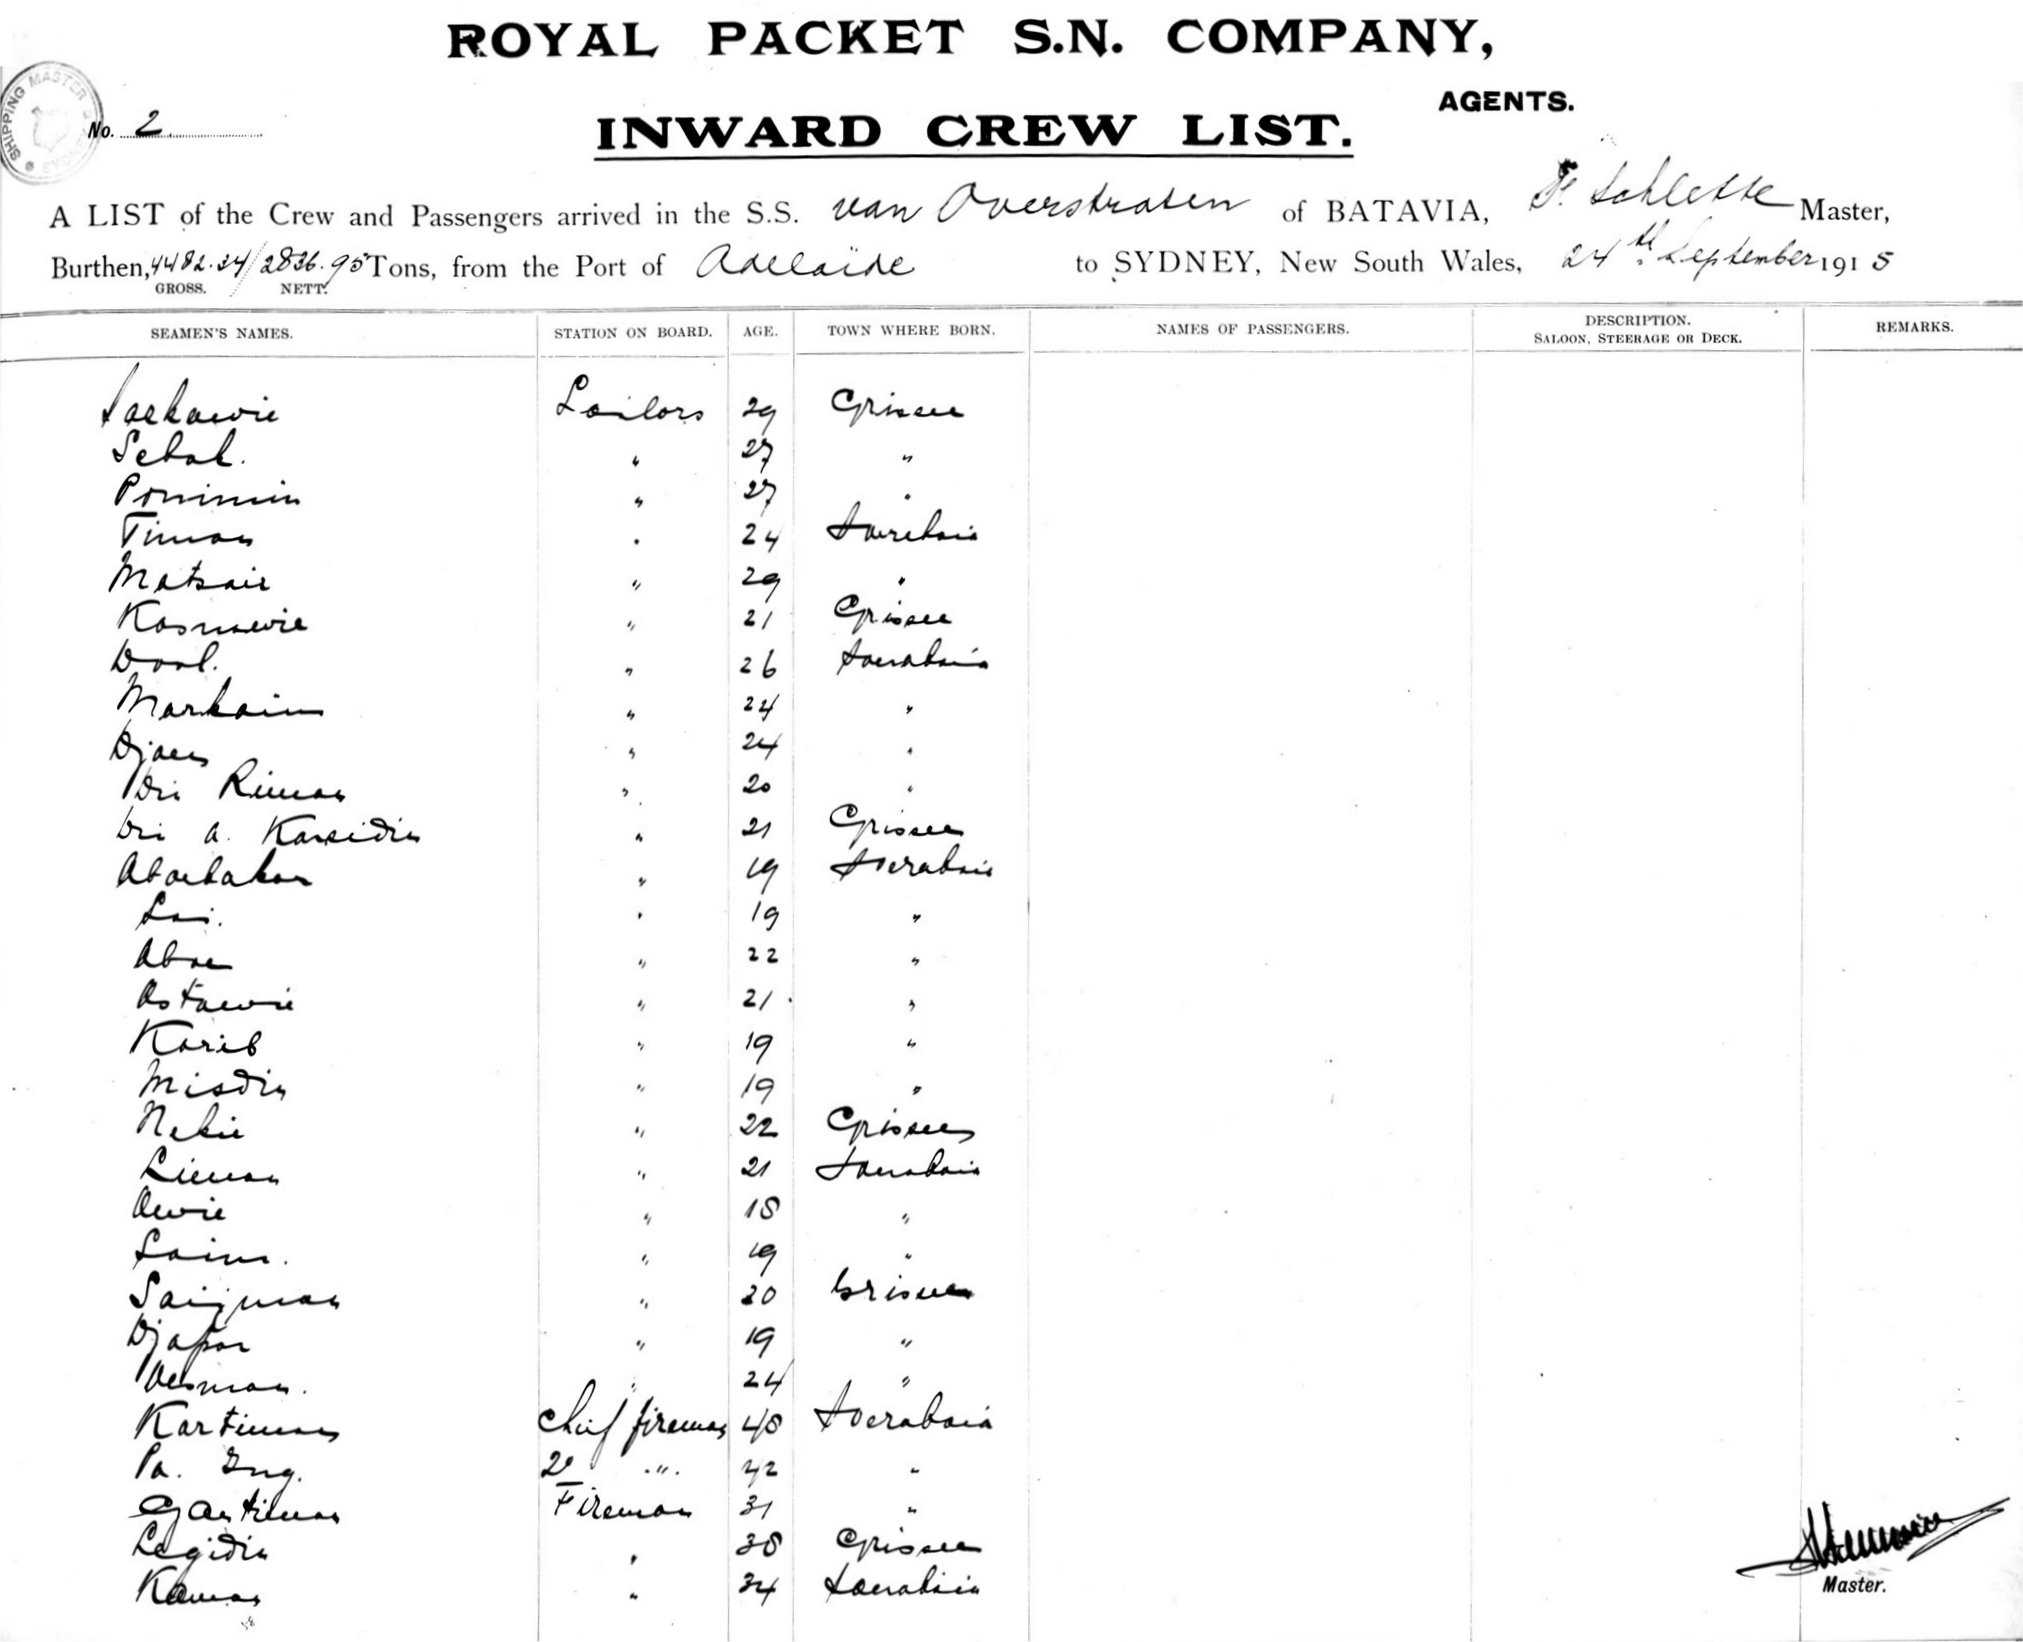 ROYAL PACKET S.N. COMPANY,
AGENTS.
SHIPPING MASTER SYDNEY
No. 2
INWARD CREW LIST.
A LIST of the Crew and Passengers arrived in the S.S. van Overstraten of BATAVIA, Master,
Burthen, 4482.34/2836.95 Tons, from the Port of Adelaide to SYDNEY, New South Wales, 24th September 1915
GROSS. NETT.
SEAMEN'S NAMES. STATION ON BOARD. AGE. TOWN WHERE BORN. NAMES OF PASSENGERS. DESCRIPTION. SALOON, STEERAGE OR DECK. REMARKS.
Sailors 29 Grissee
" 27 "
Ponimin " 27 "
Timan " 24 Soerabaia
Matsair " 29 "
Kasnawie " 21 Grissee
" 26 Soerabaia
Markaim " 24 "
" 24 "
Dri Riman " 20 "
Dri a. Karsidin " 21 Grissee
Aboebakar " 19 Soerabaia
Sai. " 19 "
Aboe " 22 "
Astawie " 21 "
Karib " 19 "
Misdin " 19 "
" 22 Grissee
" 21 Soerabaia
" 18 "
Saim. " 19 "
Saijman " 20 Grissee
Djapar " 19 "
" 24 "
Kartiman Chief fireman 48 Soerabaia
Pa. 2e " 42 "
Fireman 31 "
Legidin " 38 Grissee
" 34 Soerabaia
Master.